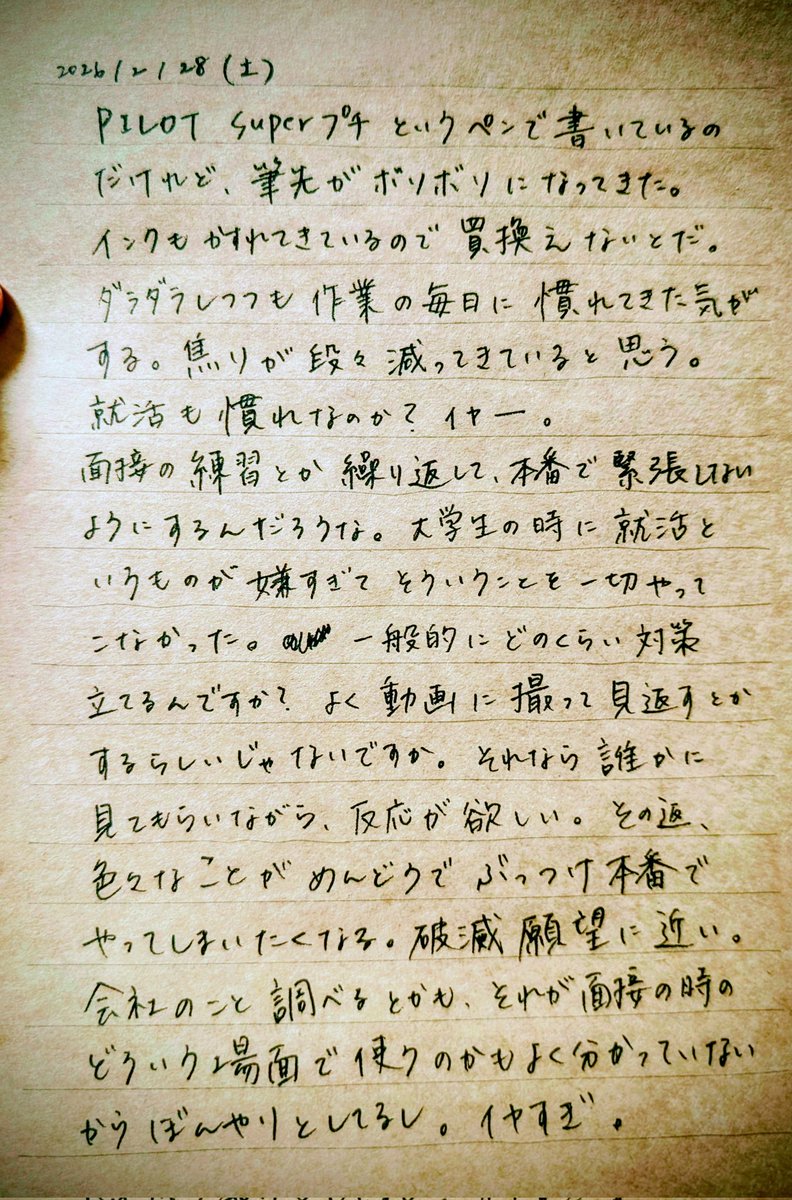 2026/2/28(土)
PILOT superプチ というペンで書いているの
だけれど、筆先がボソボソになってきた。
インクもかすれてきているので買換えないとだ。
ダラダラしつつも作業の毎日に慣れてきた気が
する。焦りが段々減ってきていると思う。
就活も慣れなのか？イヤー。
面接の練習とか繰り返して、本番で緊張しない
ようにするんだろうな。大学生の時に就活と
いうものが嫌すぎてそういうことを一切やって
こなかった。一般的にどのくらい対策
立てるんですか？よく動画に撮って見返すとか
するらしいじゃないですか。それなら誰かに
見てもらいながら、反応が欲しい。その返、
色々なことがめんどうでぶっつけ本番で
やってしまいたくなる。破滅願望に近い。
会社のこと調べるとかも、それが面接の時の
どういう場面で使うのかもよく分かっていない
からぼんやりとしてるし。イヤすぎ。